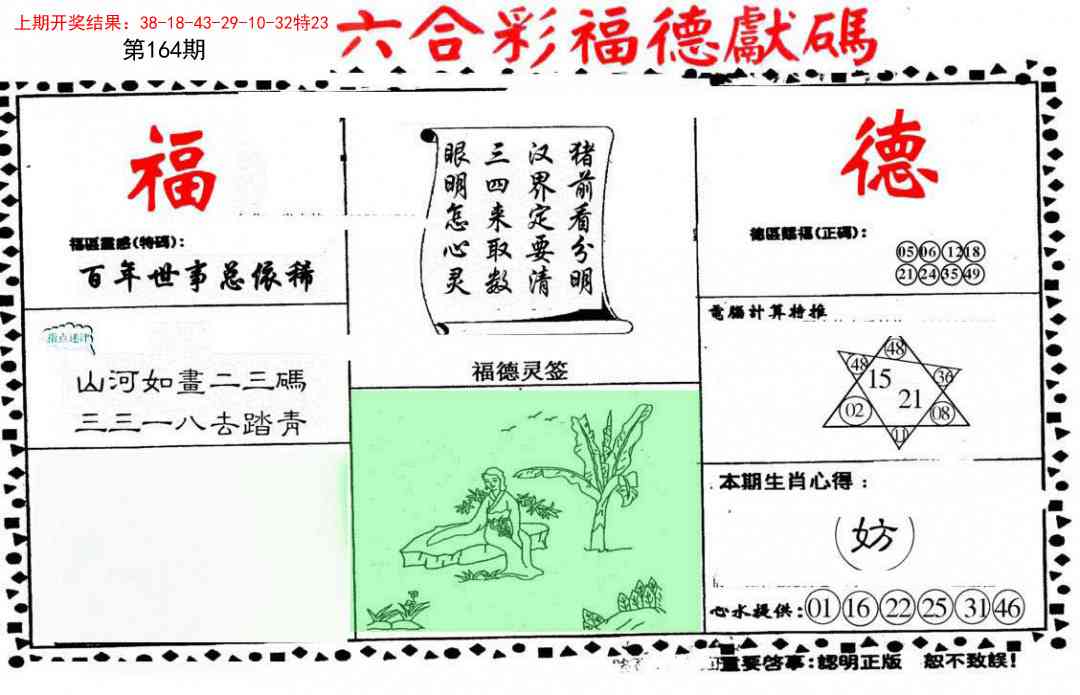 上期开奖结果：38-18-43-29-10-32特23
第164期
六合彩福德獻碼
福
福區靈感(特碼)：
百年世事总依稀
指点迷津
山河如畫二三碼
三三一八去踏青
猪前看分明
汉界定要清
三四来取数
眼明怎心灵
福德灵签
德
德區賜福(正碼)：
05 06 12 18
21 24 35 49
電腦計算特推
48
48 36
15
21
02 08
11
本期生肖心得：
(妨)
心水提供：01 16 22 25 31 46
重要啓事：認明正版 恕不致誤！